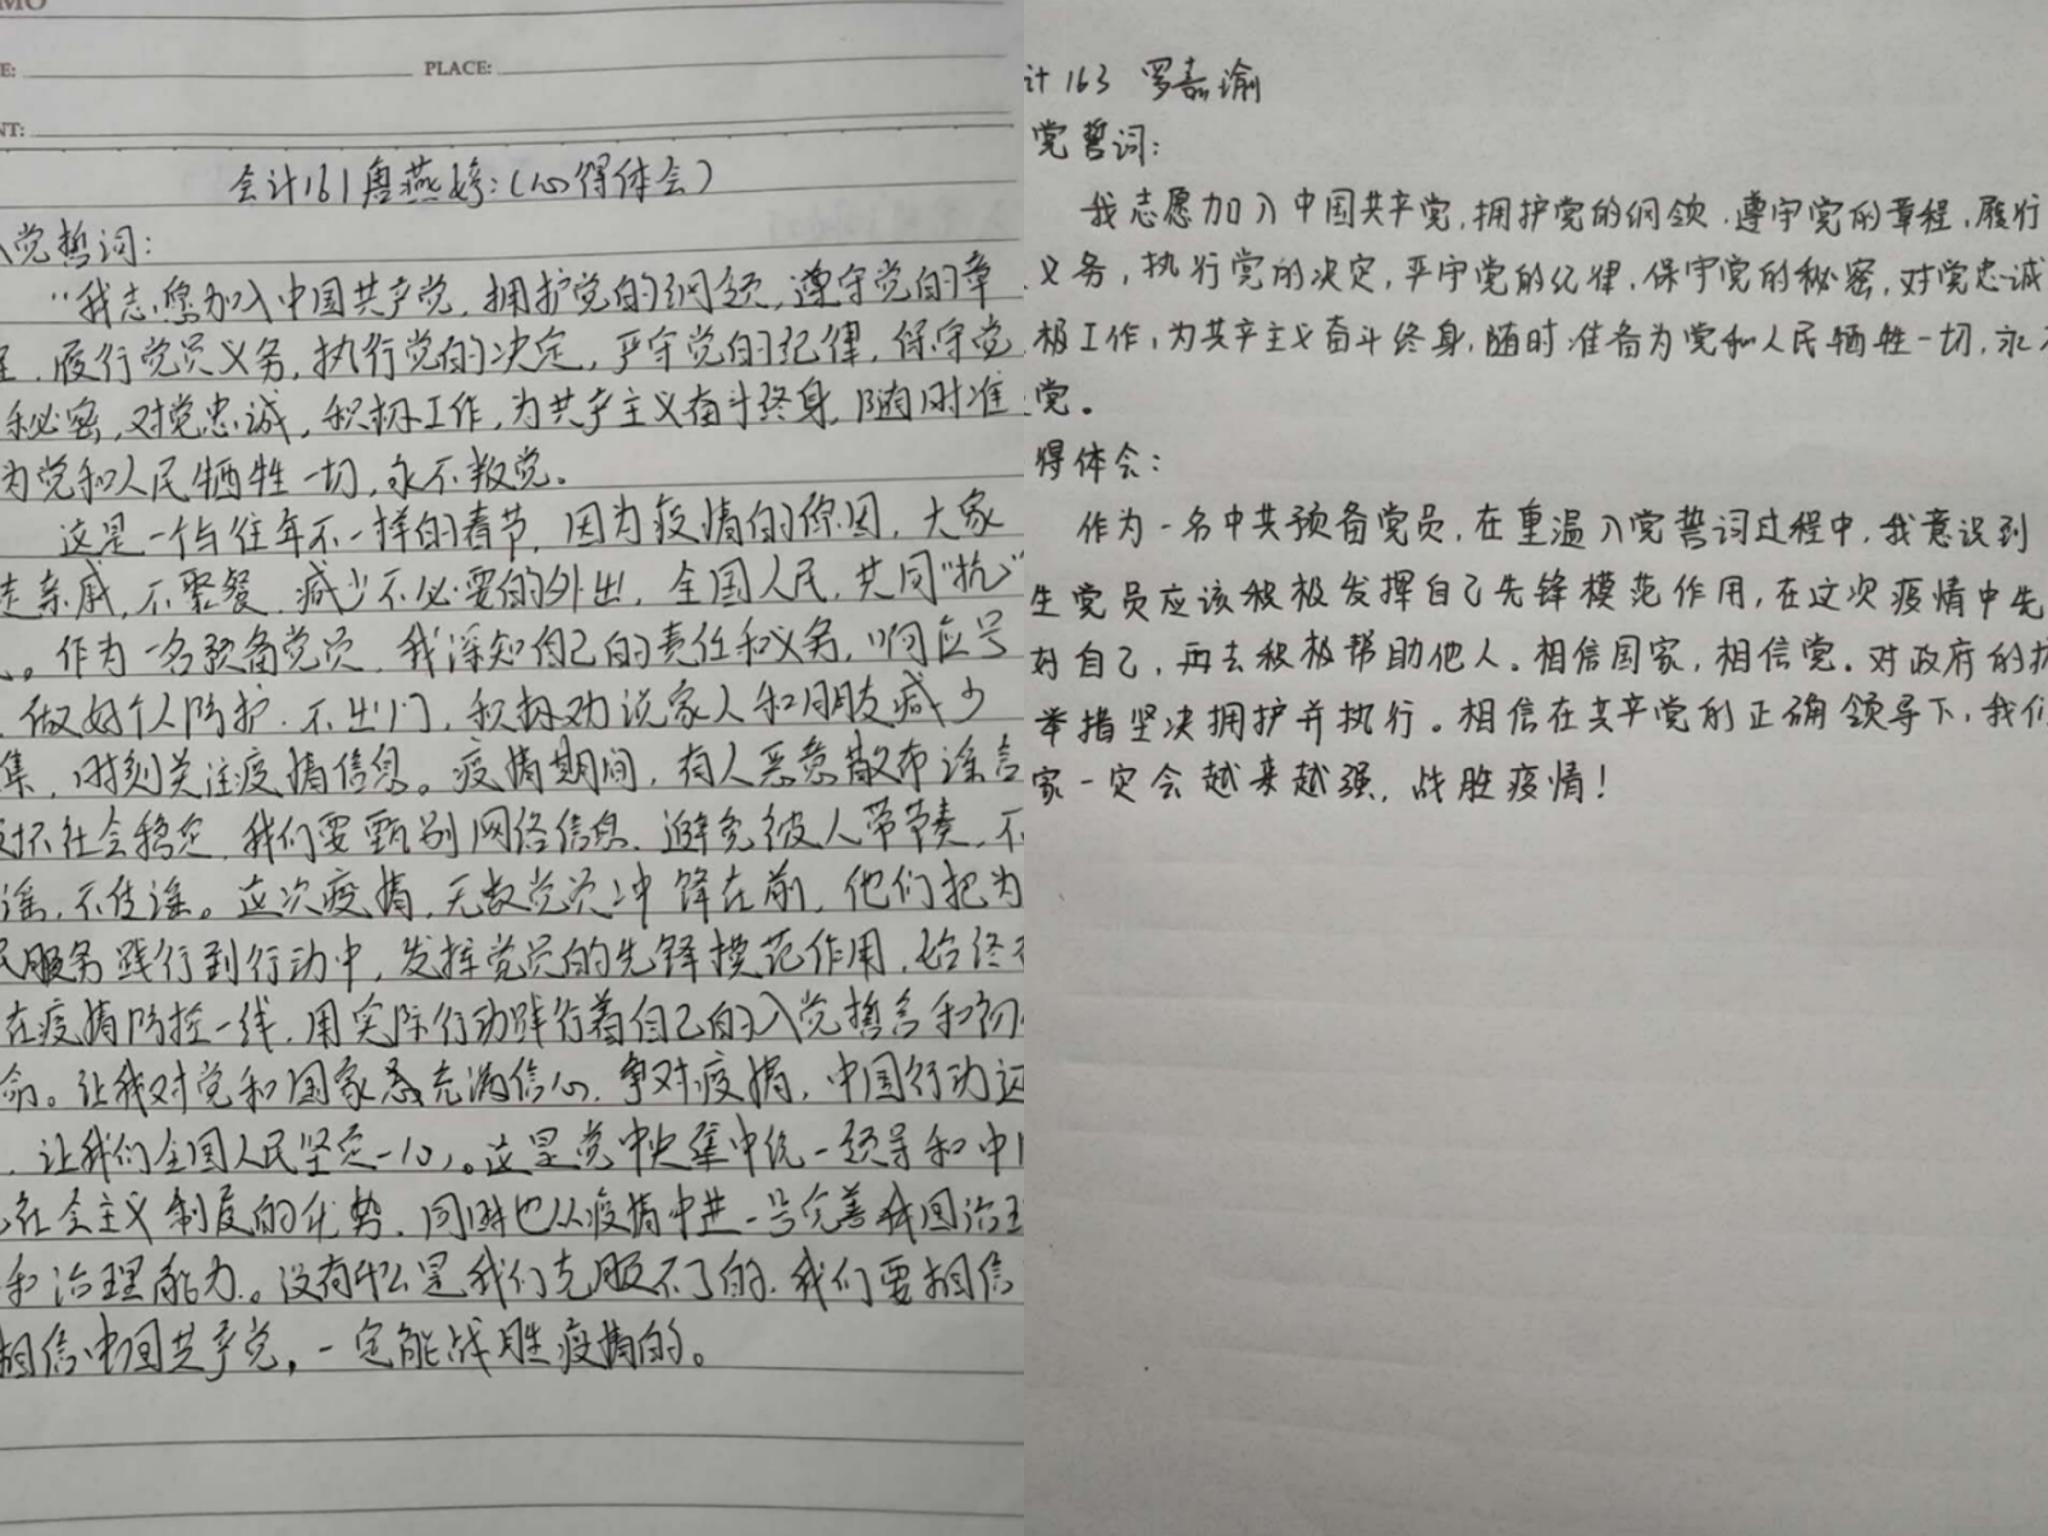 MO
E:
PLACE:
NT:
会计161唐燕婷:(心得体会)
入党誓词:
“我志愿加入中国共产党,拥护党的纲领,遵守党的章
程,履行党员义务,执行党的决定,严守党的纪律,保守党
秘密,对党忠诚,积极工作,为共产主义奋斗终身,随时准
为党和人民牺牲一切,永不叛党。
这是一个与往年不一样的春节,因为疫情的原因,大家
走亲戚,不聚餐,减少不必要的外出,全国人民,共同“抗”
。作为一名预备党员,我深知自己的责任和义务,响应号
,做好个人防护,不出门,积极劝说家人和朋友减少
集,时刻关注疫情信息。疫情期间,有人恶意散布谣言
破坏社会稳定,我们要甄别网络信息,避免被人带节奏,不
谣,不传谣。这次疫情,无数党员冲锋在前,他们把为
民服务践行到行动中,发挥党员的先锋模范作用,始终
在疫情防控一线,用实际行动践行着自己的入党誓言和初
命。让我对党和国家充满信心,争对疫情,中国行动
,让我们全国人民坚定一心。这是党中央集中统一领导和中
社会主义制度的优势,同时也从疫情中进一步完善我国治理
和治理能力。没有什么是我们克服不了的,我们要相信
相信中国共产党,一定能战胜疫情的。
计163 罗嘉瑜
党誓词:
我志愿加入中国共产党,拥护党的纲领,遵守党的章程,履行
义务,执行党的决定,严守党的纪律,保守党的秘密,对党忠诚
极工作,为共产主义奋斗终身,随时准备为党和人民牺牲一切,永不
党。
得体会:
作为一名中共预备党员,在重温入党誓词过程中,我意识到
生党员应该积极发挥自己先锋模范作用,在这次疫情中先
好自己,再去积极帮助他人。相信国家,相信党。对政府的抗
举措坚决拥护并执行。相信在共产党的正确领导下,我们
家一定会越来越强,战胜疫情!